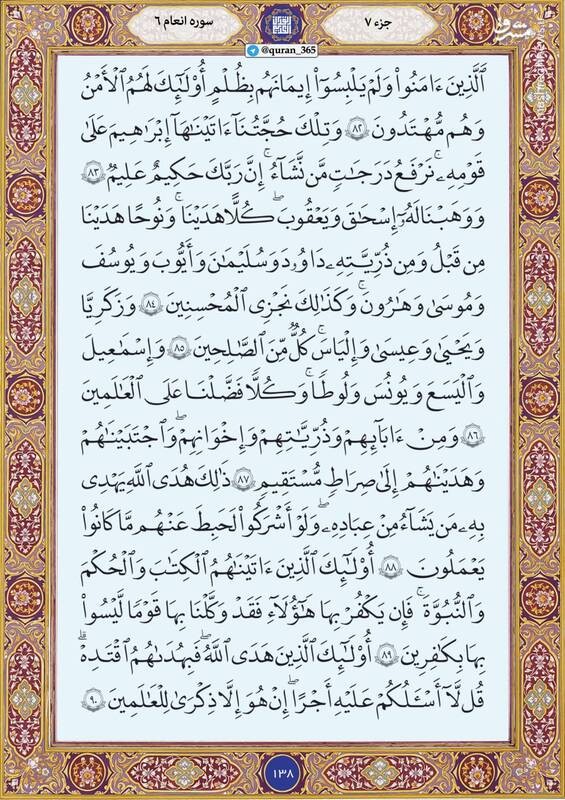 جزء ۷
سوره انعام ۶
@quran_365
ٱلَّذِينَ ءَامَنُوا۟ وَلَمْ يَلْبِسُوٓا۟ إِيمَانَهُم بِظُلْمٍ أُو۟لَٰٓئِكَ لَهُمُ ٱلْأَمْنُ
وَهُم مُّهْتَدُونَ ۸۲ وَتِلْكَ حُجَّتُنَآ ءَاتَيْنَٰهَآ إِبْرَٰهِيمَ عَلَىٰ
قَوْمِهِۦۚ نَرْفَعُ دَرَجَٰتٍ مَّن نَّشَآءُۗ إِنَّ رَبَّكَ حَكِيمٌ عَلِيمٌ ۸۳
وَوَهَبْنَا لَهُۥٓ إِسْحَٰقَ وَيَعْقُوبَۚ كُلًّا هَدَيْنَاۚ وَنُوحًا هَدَيْنَا
مِن قَبْلُۖ وَمِن ذُرِّيَّتِهِۦ دَاوُۥدَ وَسُلَيْمَٰنَ وَأَيُّوبَ وَيُوسُفَ
وَمُوسَىٰ وَهَٰرُونَۚ وَكَذَٰلِكَ نَجْزِى ٱلْمُحْسِنِينَ ۸۴ وَزَكَرِيَّا
وَيَحْيَىٰ وَعِيسَىٰ وَإِلْيَاسَۖ كُلٌّ مِّنَ ٱلصَّٰلِحِينَ ۸۵ وَإِسْمَٰعِيلَ
وَٱلْيَسَعَ وَيُونُسَ وَلُوطًاۚ وَكُلًّا فَضَّلْنَا عَلَى ٱلْعَٰلَمِينَ
۸۶ وَمِنْ ءَابَآئِهِمْ وَذُرِّيَّٰتِهِمْ وَإِخْوَٰنِهِمْۖ وَٱجْتَبَيْنَٰهُمْ
وَهَدَيْنَٰهُمْ إِلَىٰ صِرَٰطٍ مُّسْتَقِيمٍ ۸۷ ذَٰلِكَ هُدَى ٱللَّهِ يَهْدِى
بِهِۦ مَن يَشَآءُ مِنْ عِبَادِهِۦۚ وَلَوْ أَشْرَكُوا۟ لَحَبِطَ عَنْهُم مَّا كَانُوا۟
يَعْمَلُونَ ۸۸ أُو۟لَٰٓئِكَ ٱلَّذِينَ ءَاتَيْنَٰهُمُ ٱلْكِتَٰبَ وَٱلْحُكْمَ
وَٱلنُّبُوَّةَۚ فَإِن يَكْفُرْ بِهَا هَٰٓؤُلَآءِ فَقَدْ وَكَّلْنَا بِهَا قَوْمًا لَّيْسُوا۟
بِهَا بِكَٰفِرِينَ ۸۹ أُو۟لَٰٓئِكَ ٱلَّذِينَ هَدَى ٱللَّهُۖ فَبِهُدَىٰهُمُ ٱقْتَدِهْۗ
قُل لَّآ أَسْـَٔلُكُمْ عَلَيْهِ أَجْرًاۖ إِنْ هُوَ إِلَّا ذِكْرَىٰ لِلْعَٰلَمِينَ ۹۰
۱۳۸